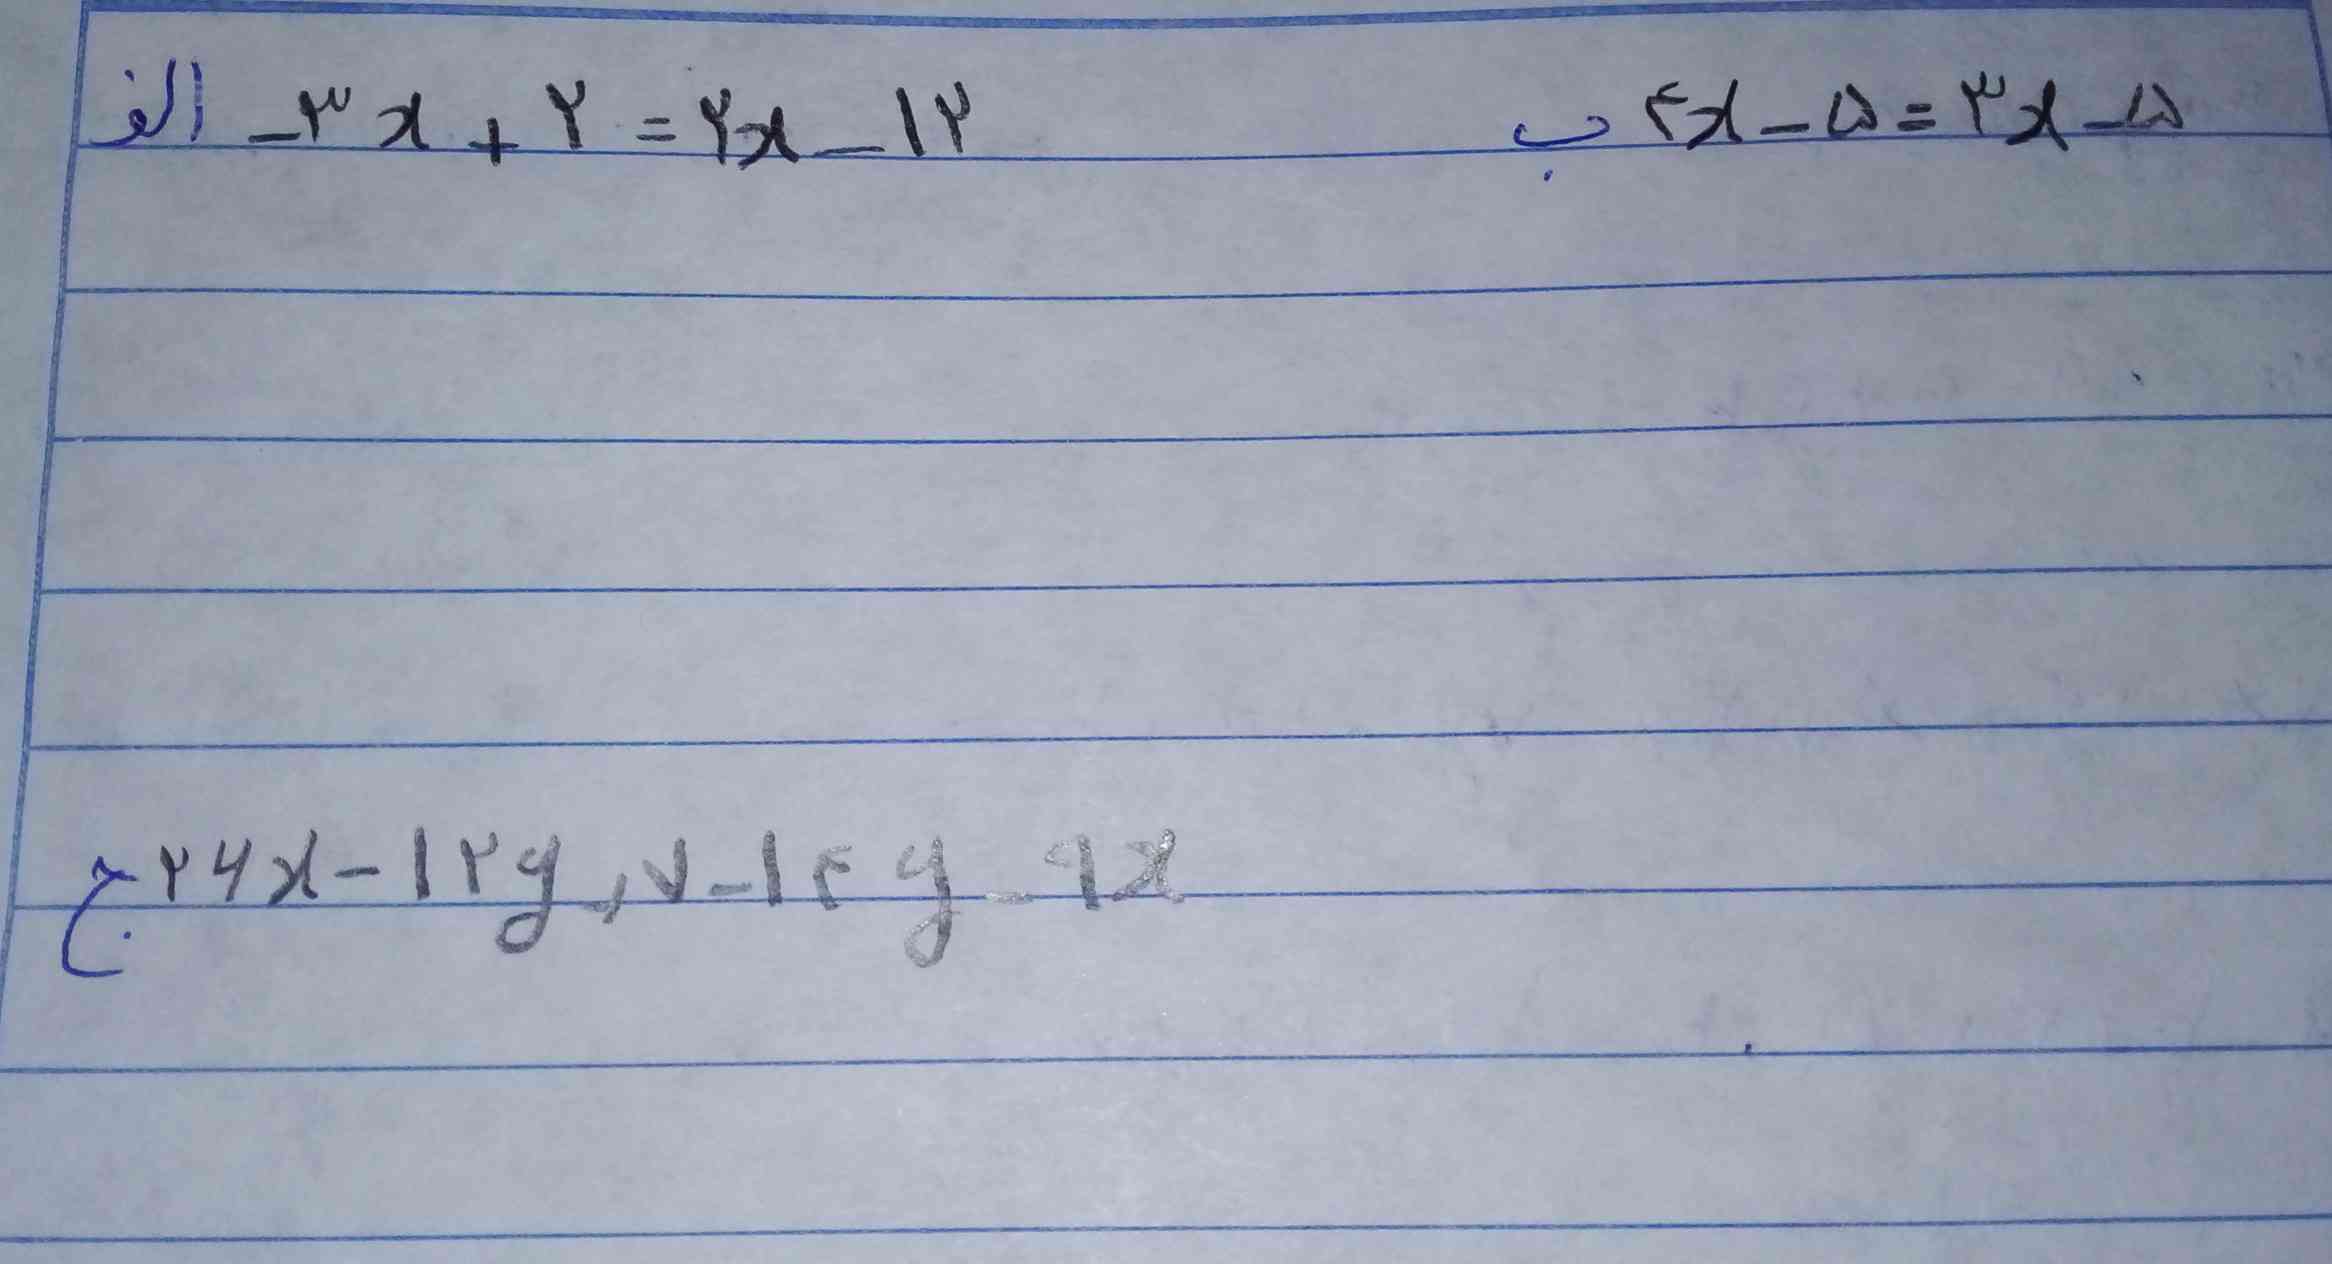 الف -۳x + ۲ = ۲x - ۱۲
ب ۴x - ۵ = ۳x - ۵
ج ۲۶x - ۱۲y + ۷ - ۱۴y - ۹x